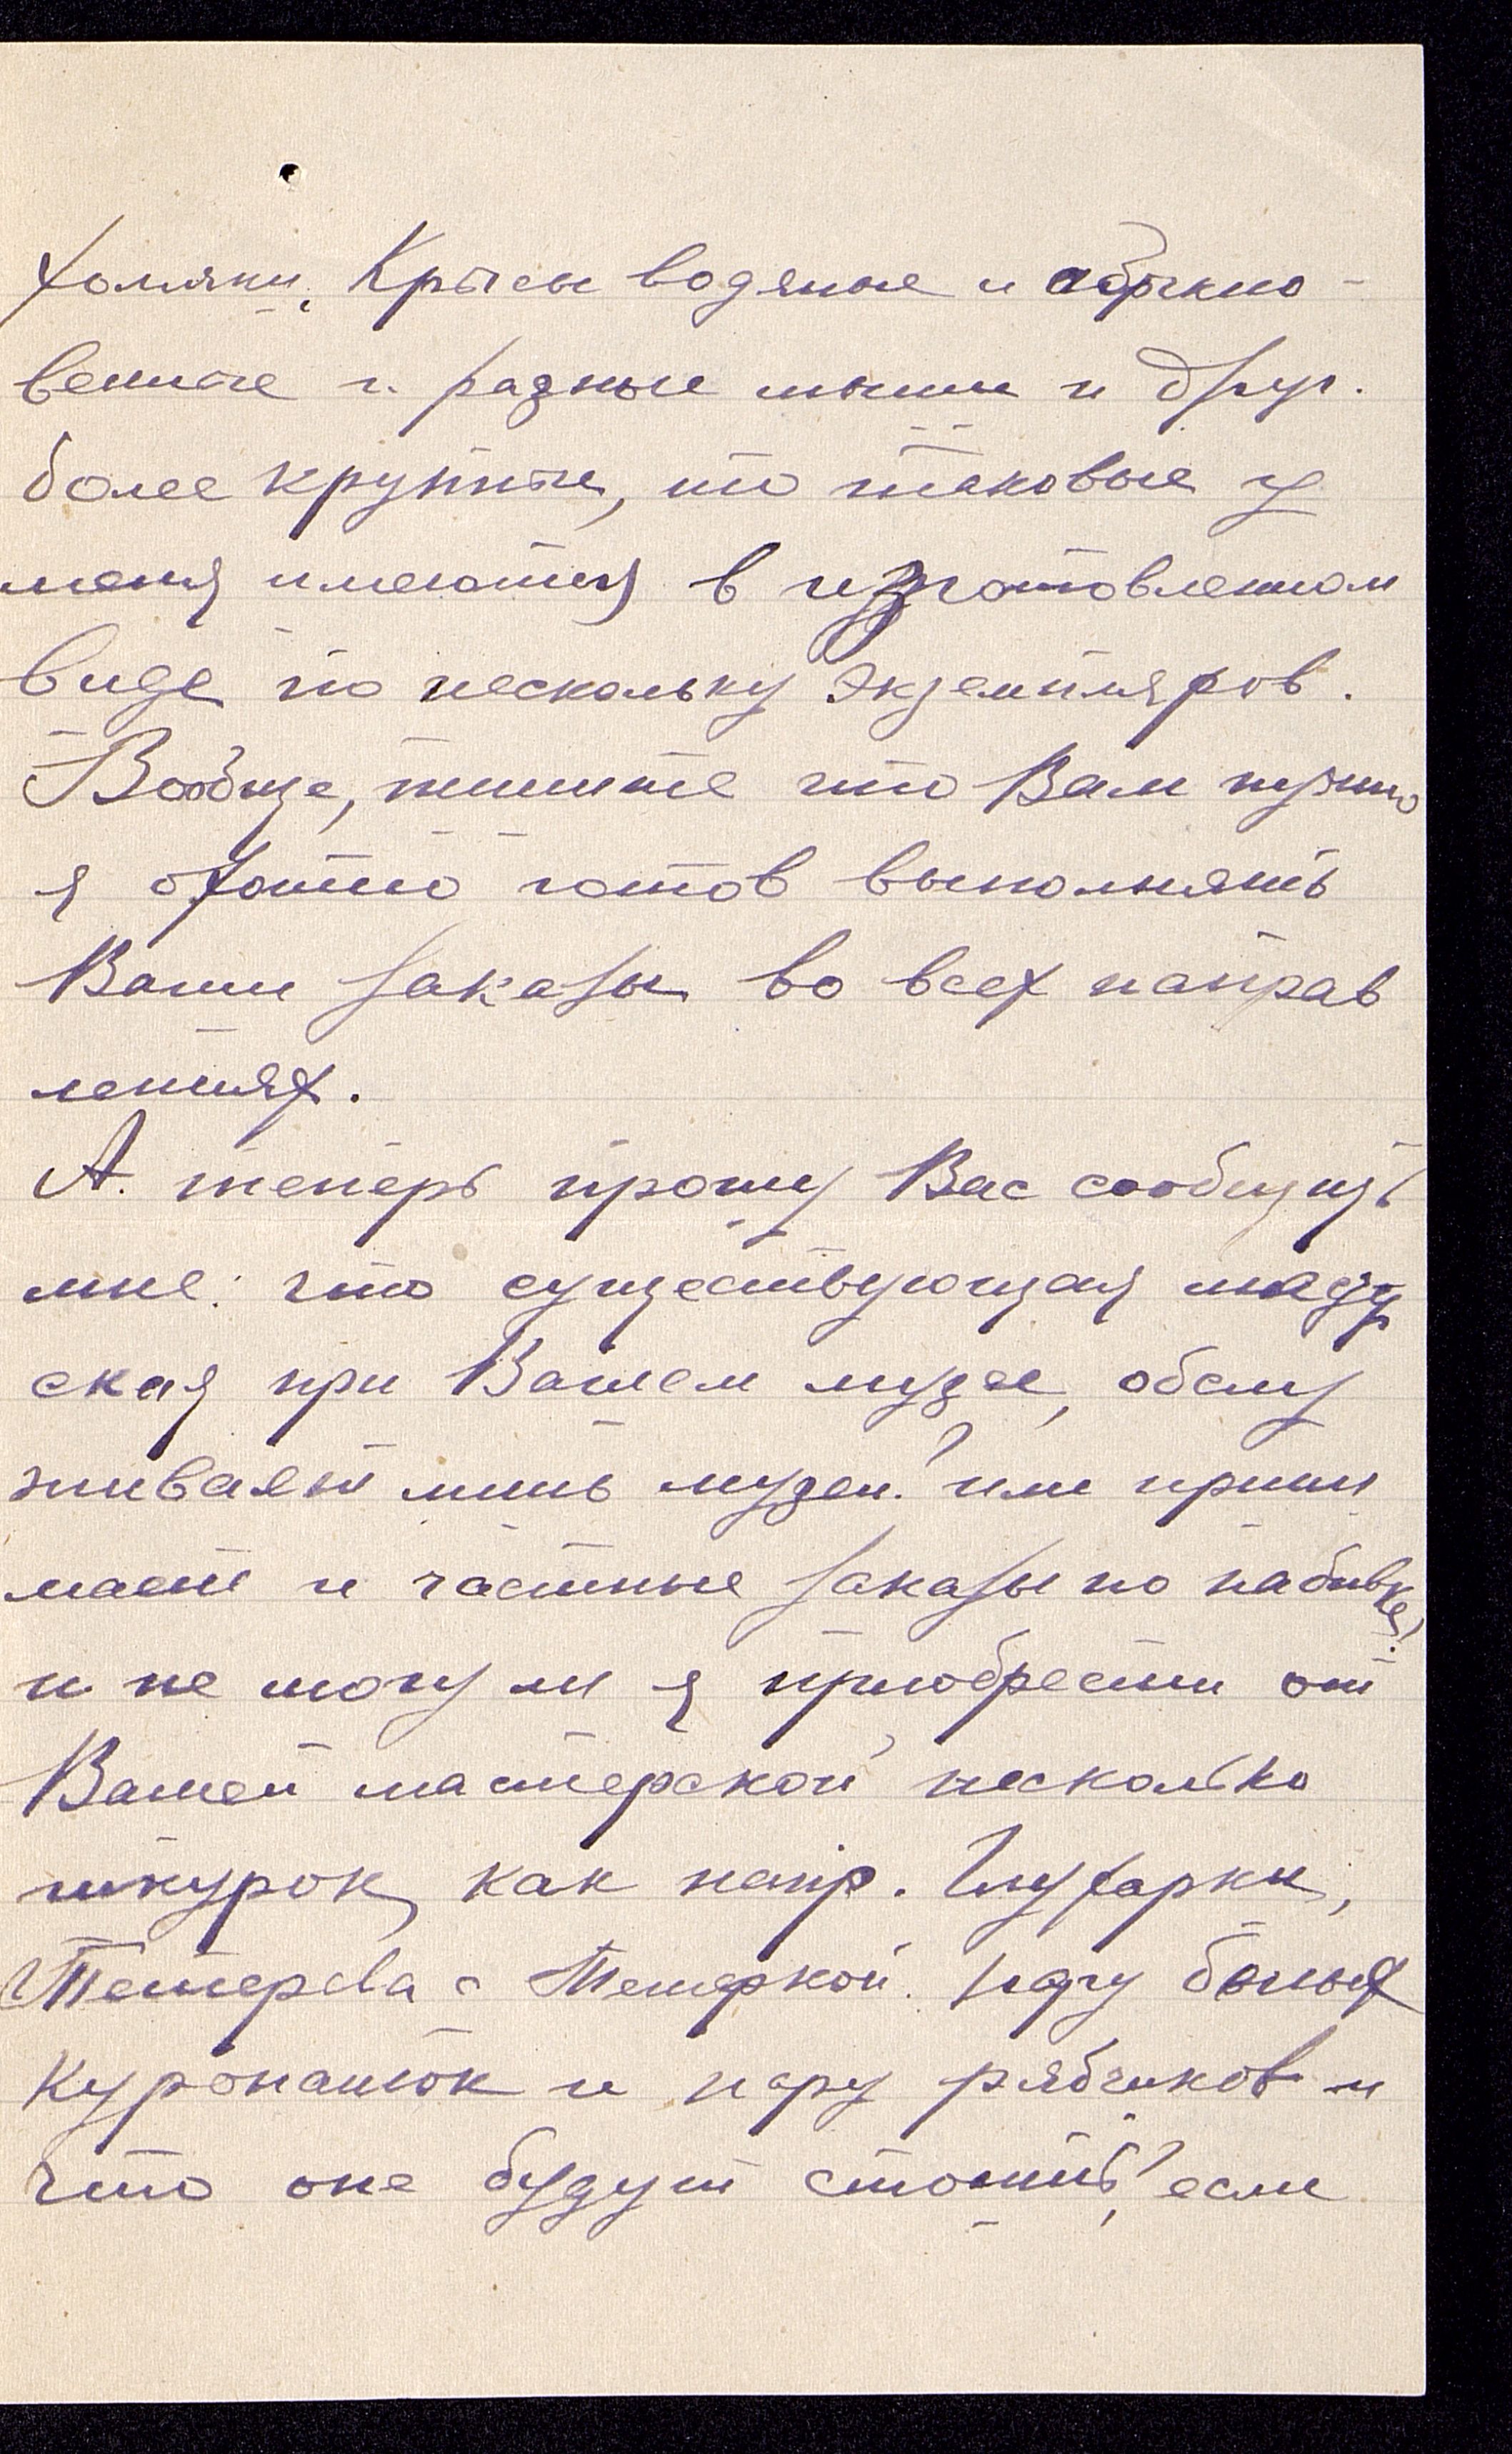 хомяки, Крысы водяные и обыкно-
венные и разные мыши и друг.
более крупные, то таковые у
меня имеются в изготовленном
виде по нескольку экземпляров.
Вообще, пишите что Вам нужно
я охотно готов выполнять
Ваши заказы во всех направ
лениях.
А теперь прошу Вас сообщить
мне: что существующая
ская при Вашем музее, обслу
живает лишь музеи? или прини
мает и частные заказы по набивке?
и не могу ли я приобрести от
Вашей мастерской несколько
шкурок, как напр. Глухарки,
Тетерева с Тетеркой. пару белых
Куропаток и пару рябчиков и
что оне будут стоить? если